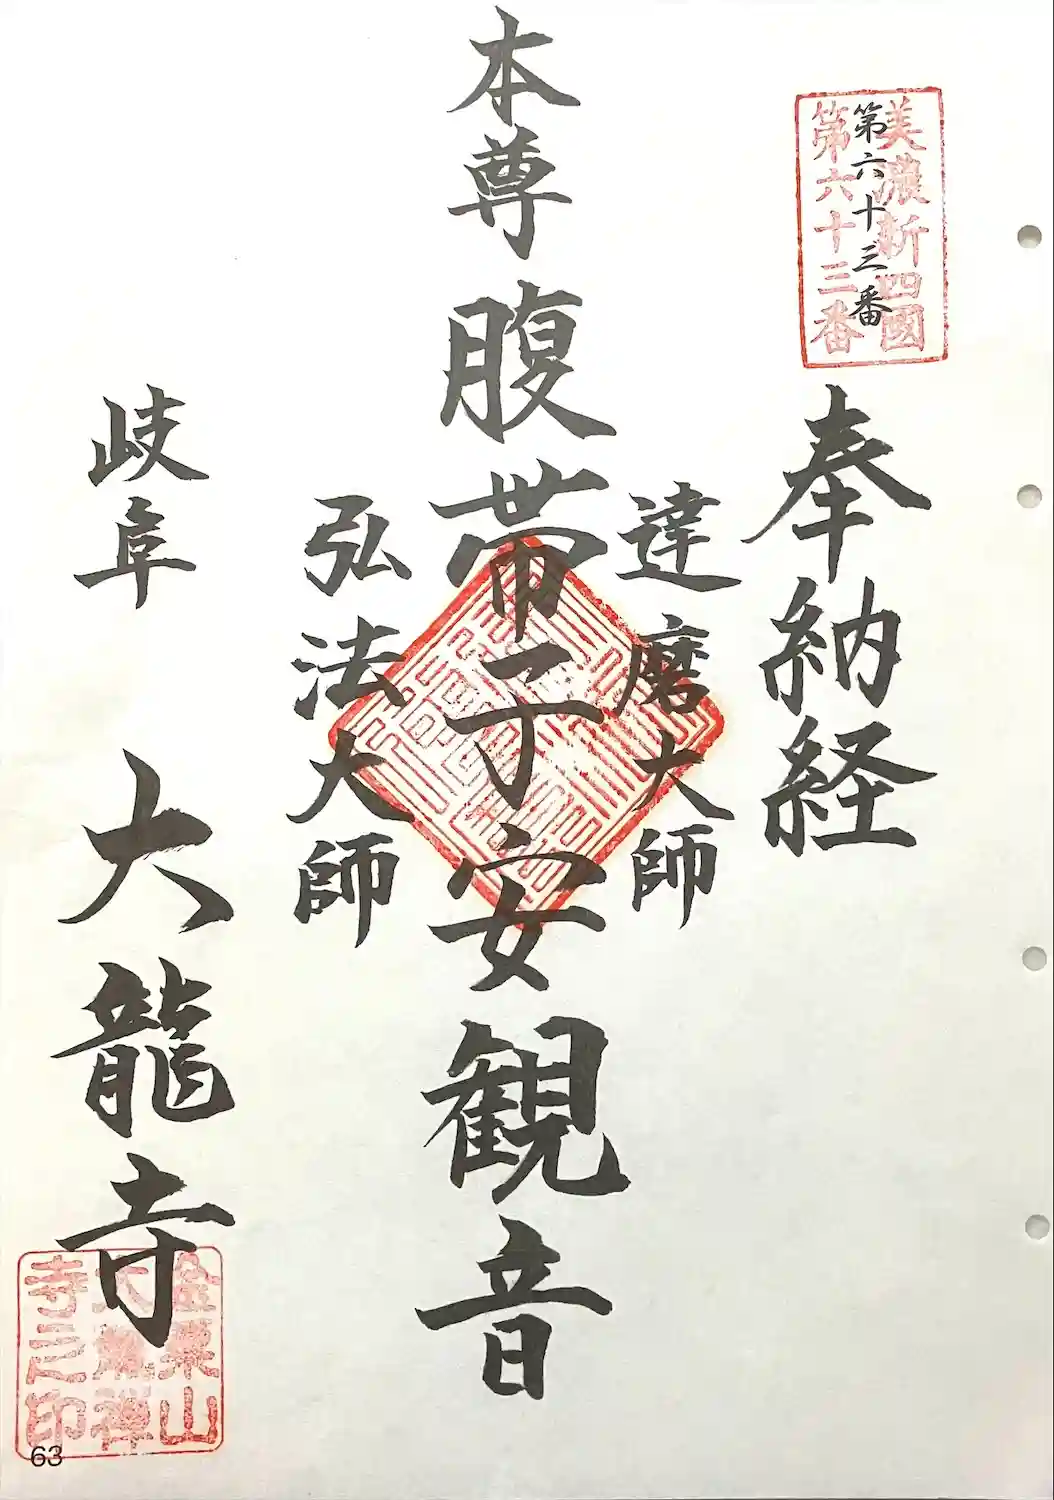 美濃新四國
第六十三番
第六十三番
奉納経
達磨大師
本尊腹帯子安観音
弘法大師
岐阜
大龍寺
金粟山
大龍禅
寺之印
63